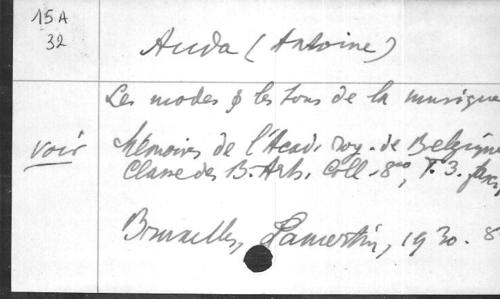 15A
32
Auda (Antoine)
Les modes & les tons de la musique
voir Mémoires de l'Acad. roy. de Belgique
Classe des B.-Arts. Coll. 8°, T. 3. fasc.
Bruxelles, Lamertin, 1930. 8